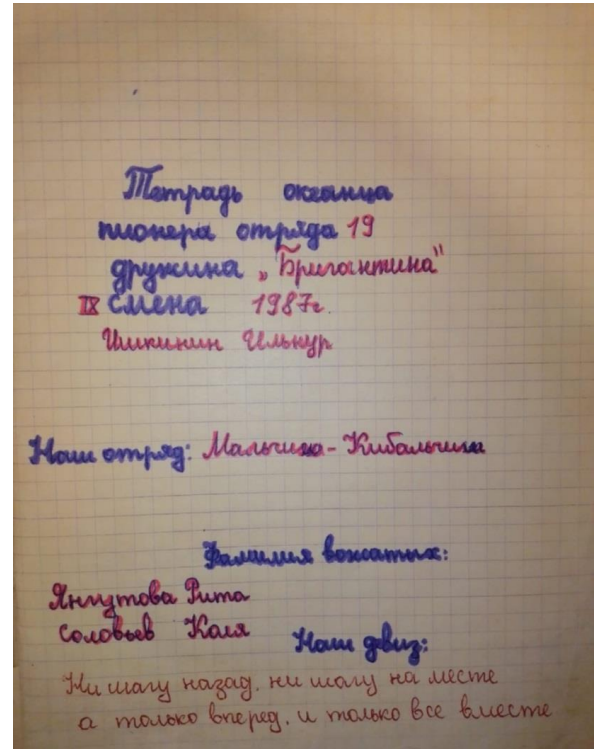 Тетрадь океанца
пионера отряда 19
дружина „Бригантина"
IX смена 1987г.
Ишкинин Ильнур
Наш отряд: Мальчиша-Кибальчиша
Фамилия вожатых:
Янгутова Рита
Соловьев Коля
Наш девиз:
Ни шагу назад, ни шагу на месте
а только вперед, и только все вместе